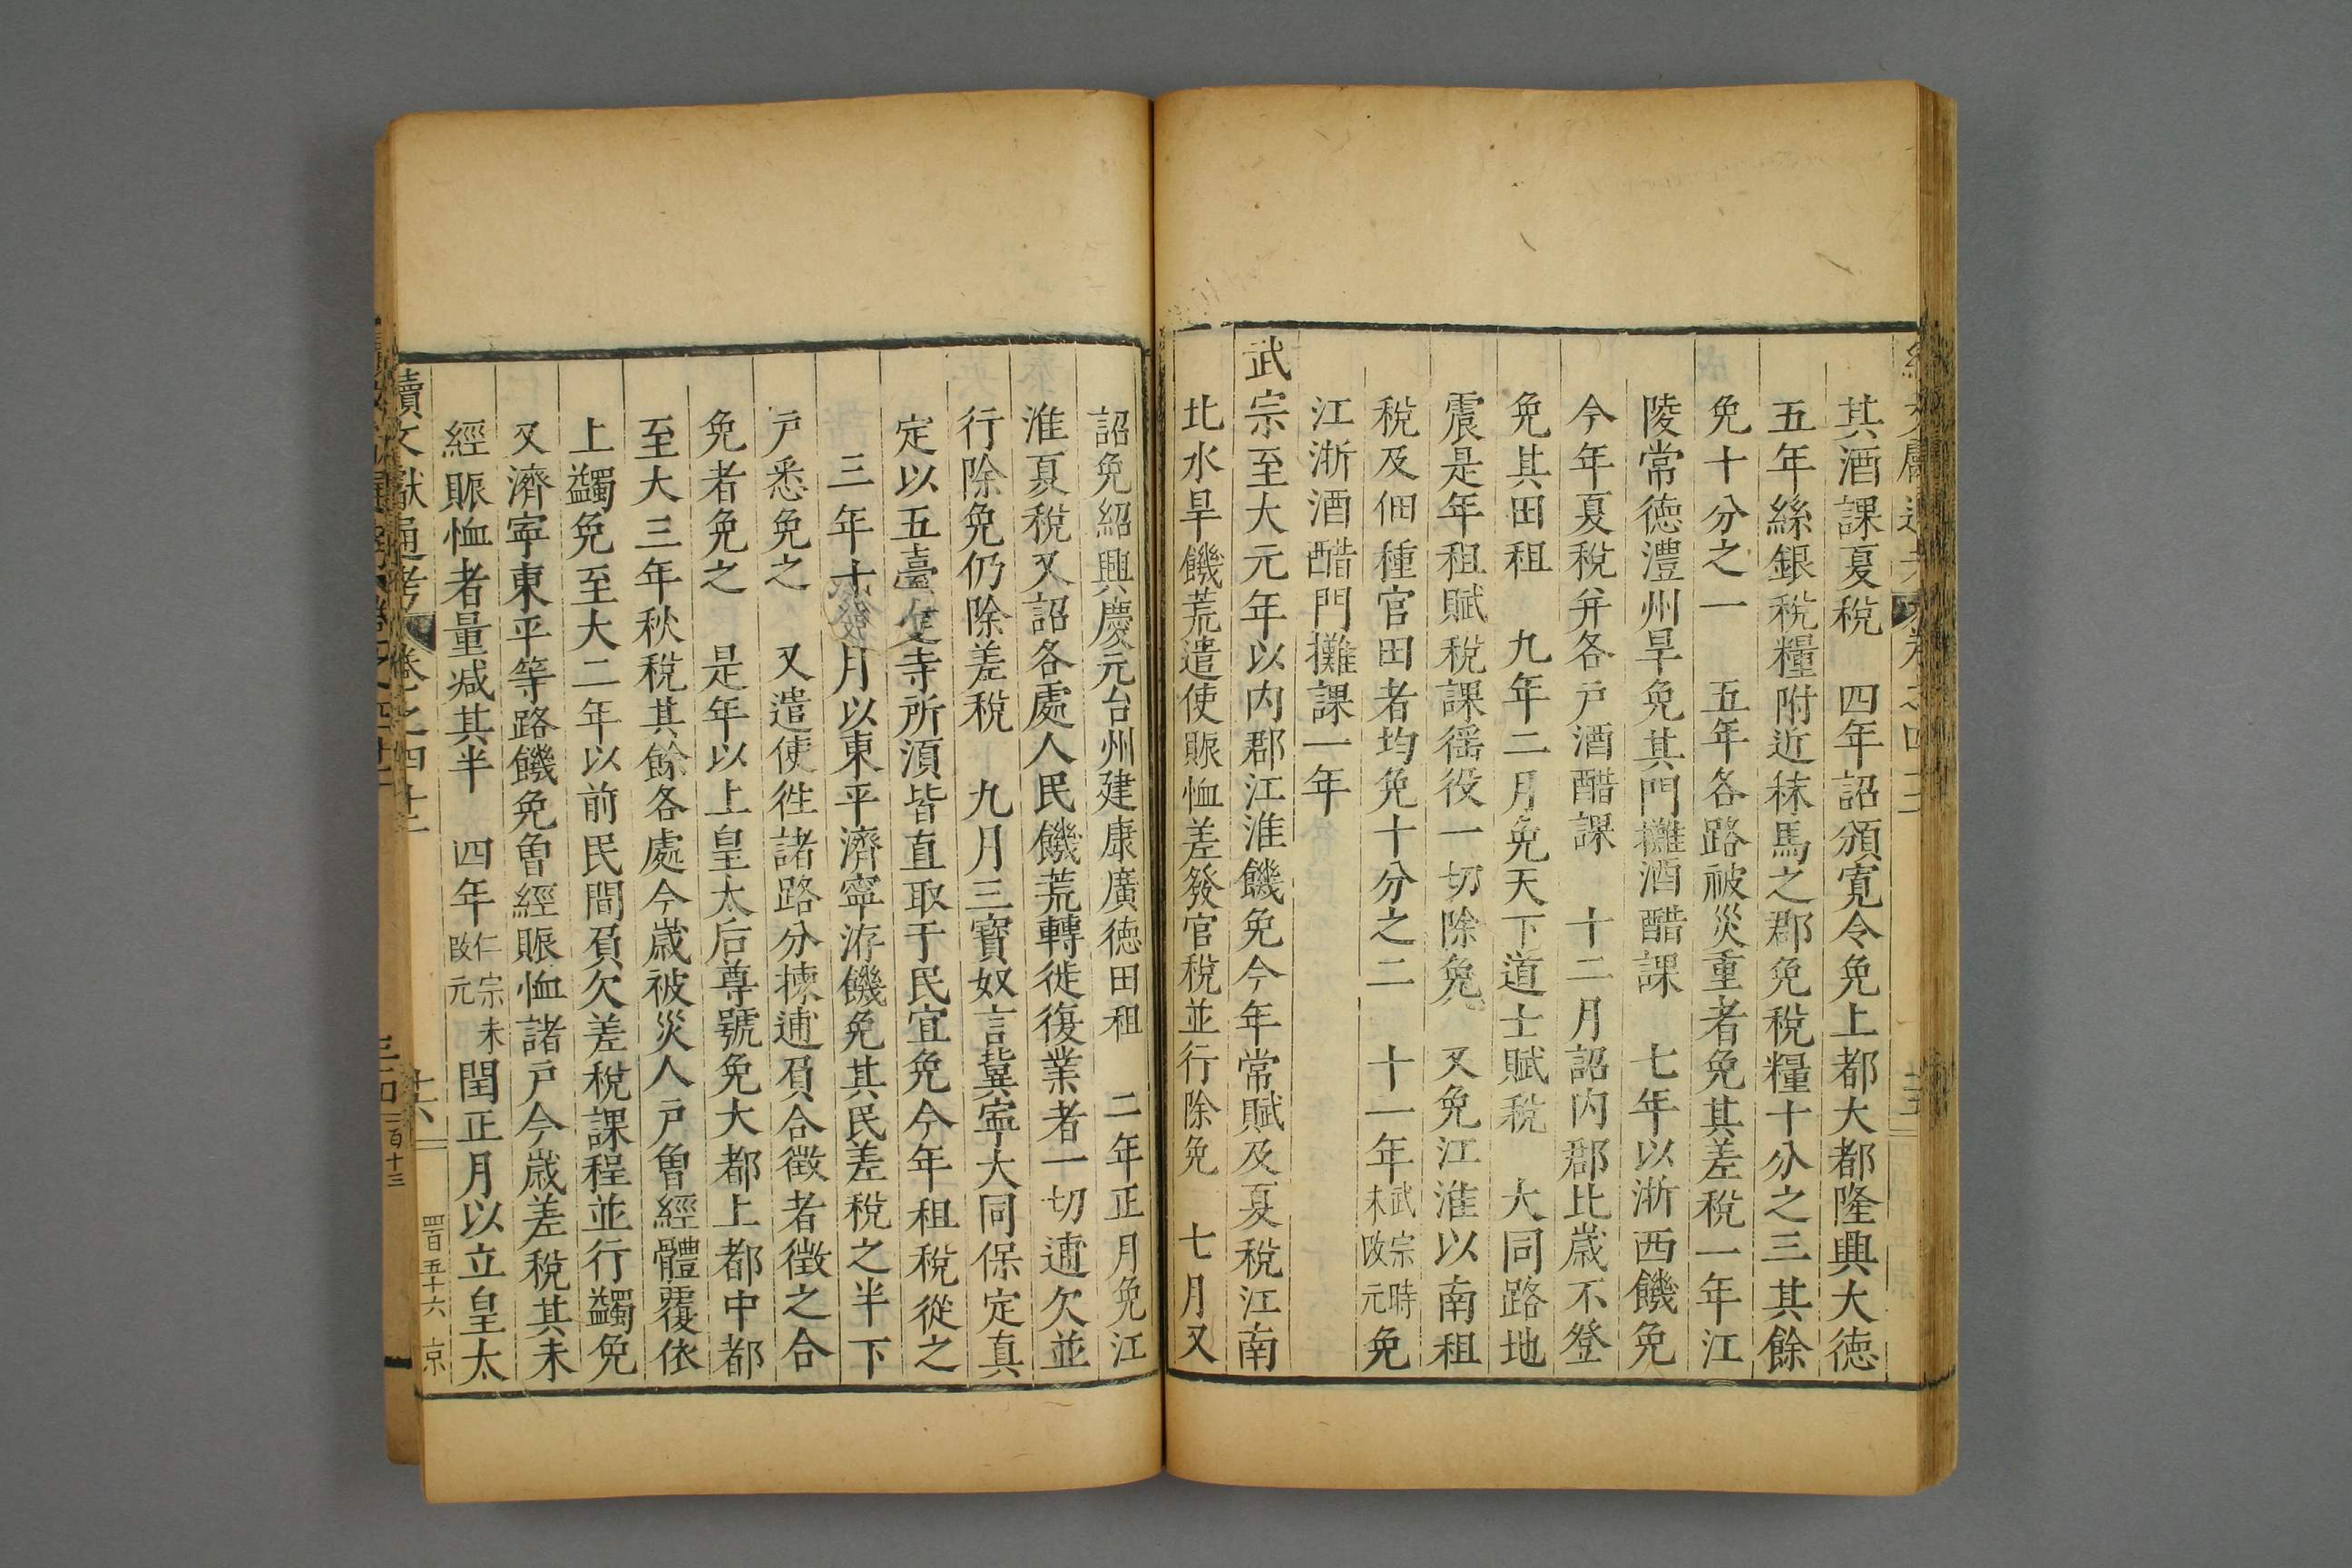 其酒課夏稅　四年詔頒寛令免上都大都隆興大德
五年絲銀稅糧附近秣馬之郡免稅糧十分之三其餘
免十分之一　五年各路被災重者免其差稅一年江
陵常德澧州旱免其門攤酒醋課　七年以浙西饑免
今年夏稅并各戸酒醋課　十二月詔内郡比歲不登
免其田租　九年二月免天下道士賦稅　大同路地
震是年租賦稅課徭役一切除免　又免江淮以南租
稅及佃種官田者均免十分之二　十一年武宗時未改元免
江浙酒醋門攤課一年
武宗至大元年以内郡江淮饑免今年常賦及夏稅江南
北水旱饑荒遣使賑恤差發官稅並行除免　七月又
詔免紹興慶元台州建康廣德田租　二年正月免江
淮夏稅又詔各處人民饑荒轉徙復業者一切逋欠並
行除免仍除差稅　九月三寶奴言冀寧大同保定真
定以五臺寺所須皆直取于民宜免今年租稅從之
三年十月以東平濟寧洊饑免其民差稅之半下
戸悉免之　又遣使徃諸路分揀逋負合徵者徵之合
免者免之　是年以上皇太后尊號免大都上都中都
至大三年秋稅其餘各處今歲被災人戸曽經體覆依
上蠲免至大二年以前民間負欠差稅課程並行蠲免
又濟寧東平等路饑免曽經賑恤諸戸今歲差稅其未
經賑恤者量減其半　四年仁宗未改元閏正月以立皇太
續文獻通考　卷之四十二　十六　四百五十六　京